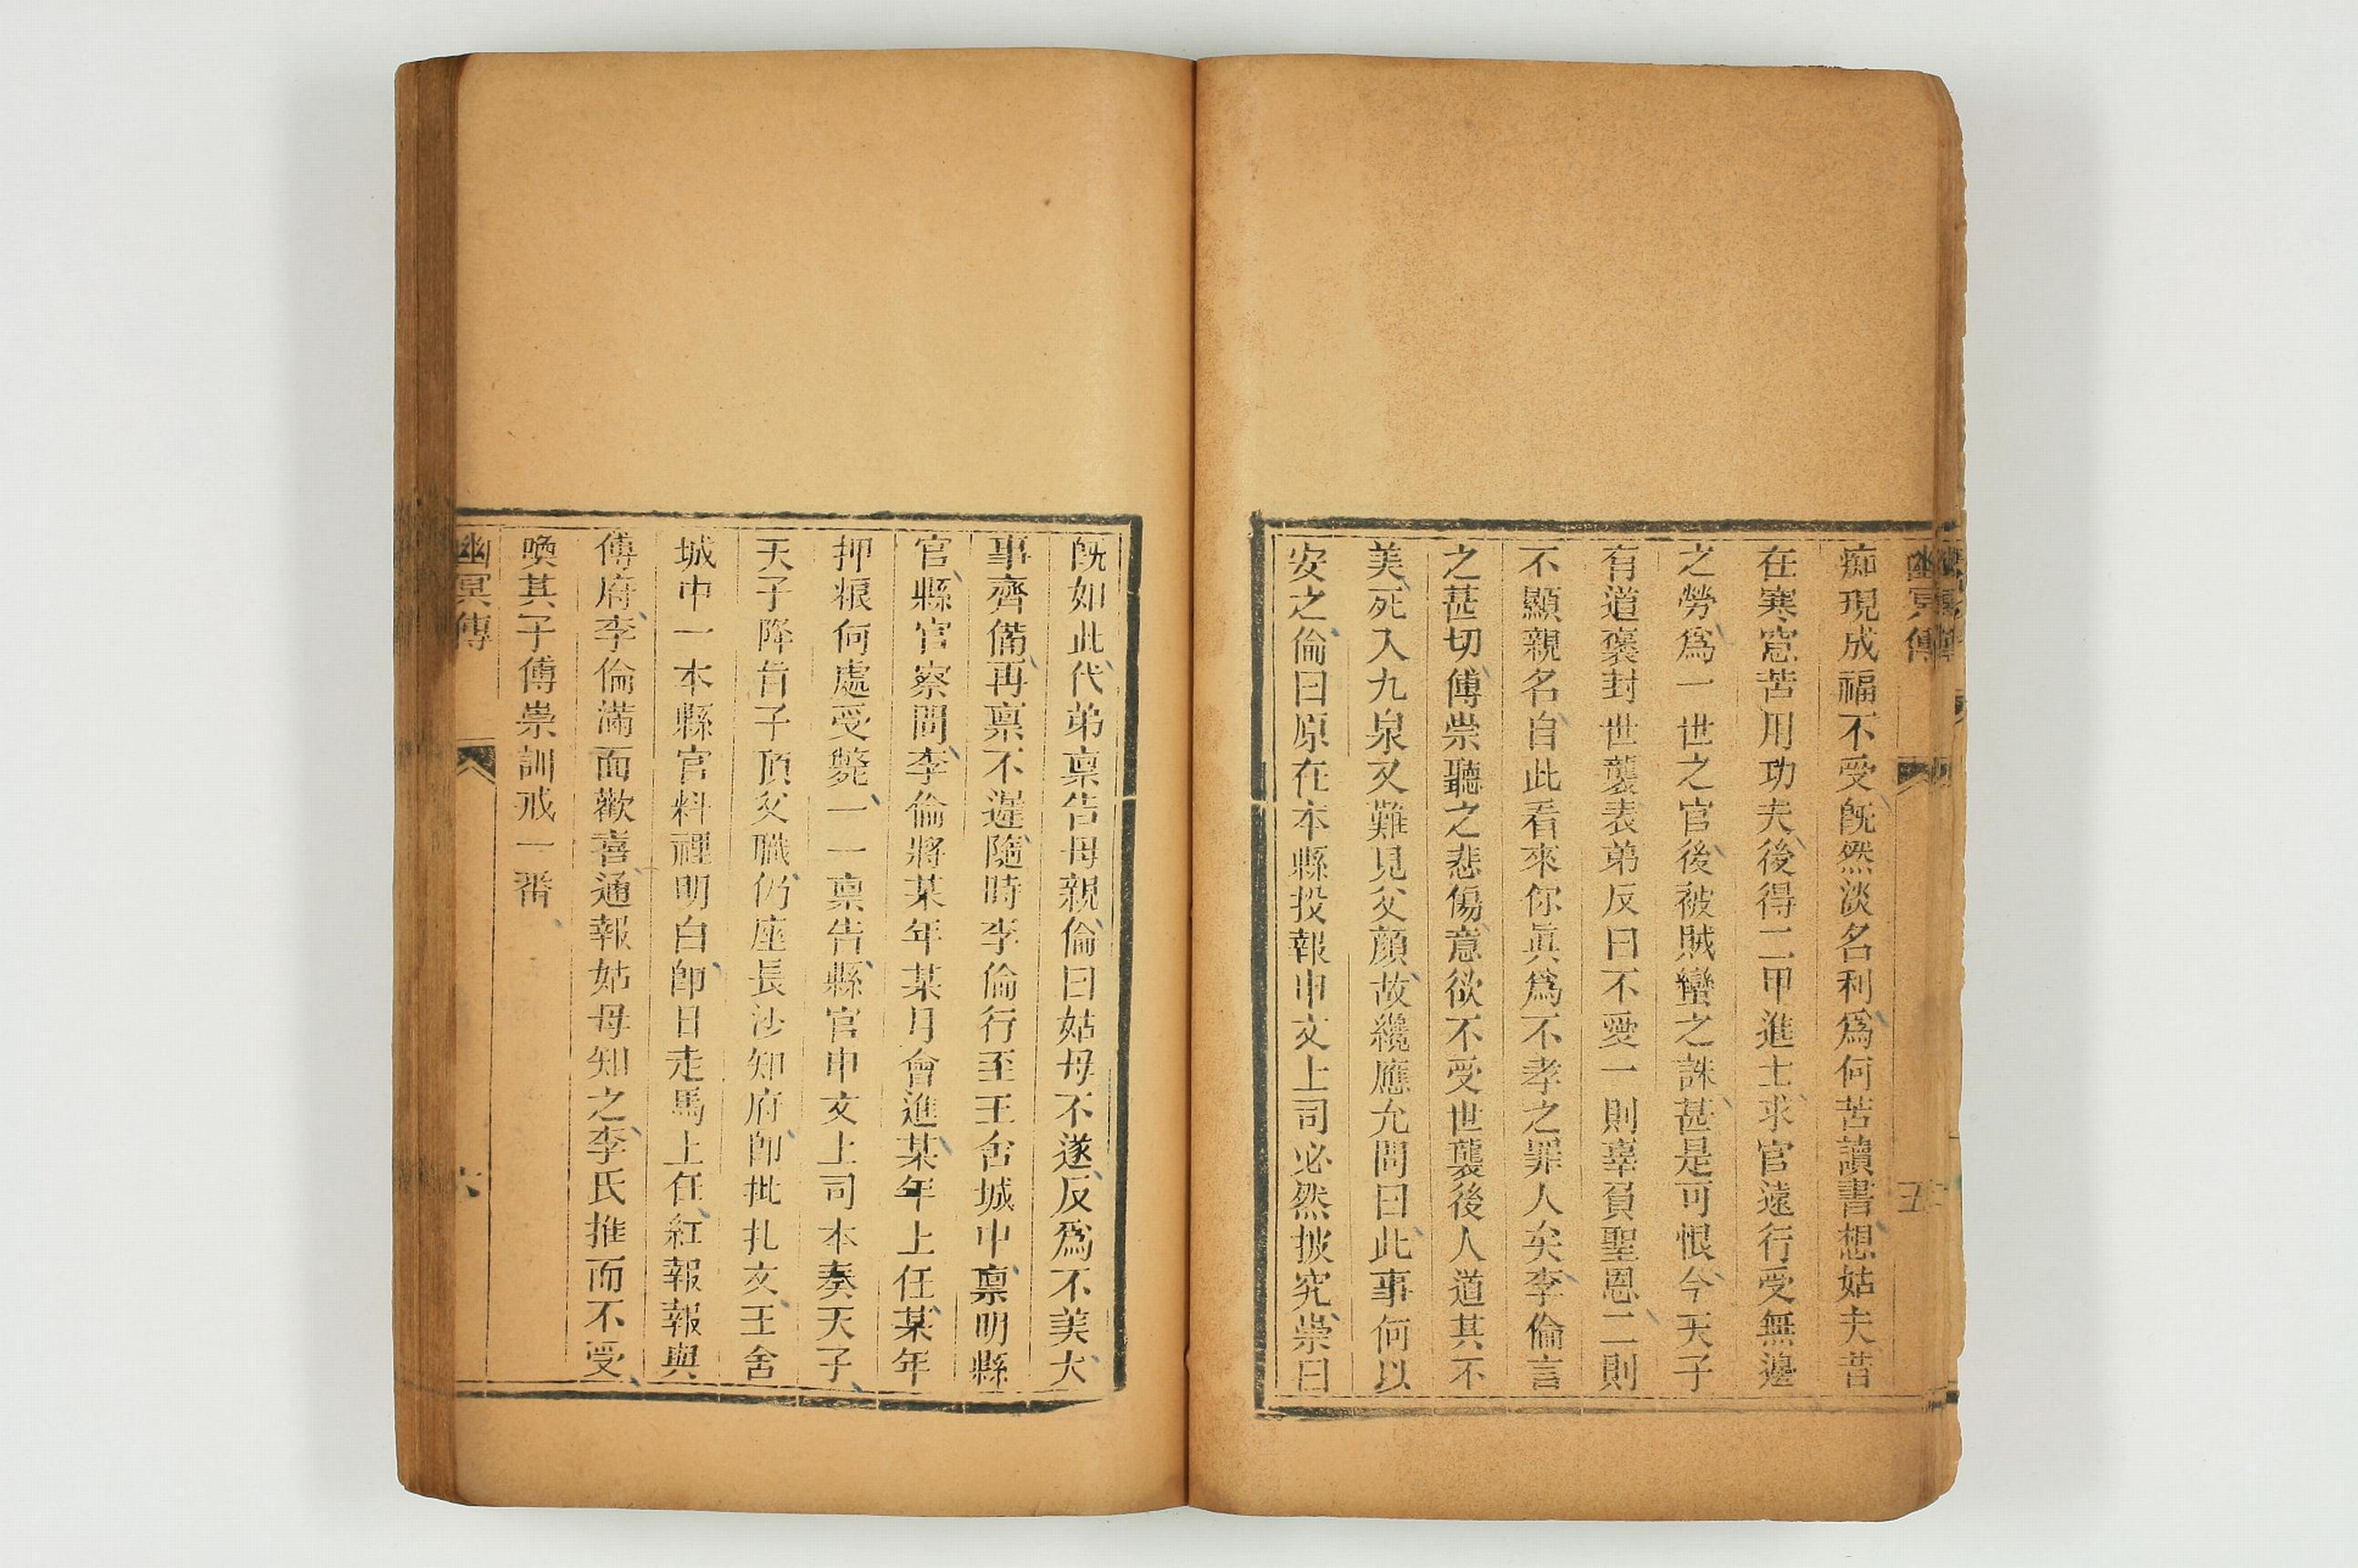 幽冥傳
五
痴現成福不受旣然淡名利爲何苦讀書想姑夫昔
在寒窓苦用功夫後得二甲進士求官遠行受無邊
之勞爲一世之官後被賊蠻之誅甚是可恨今天子
有道褒封世襲表弟反曰不愛一則辜負聖恩二則
不顯親名自此看來你眞爲不孝之罪人矣李倫言
之甚切傅崇聽之悲傷意欲不受世襲後人道其不
美死入九泉又難見父顔故纔應允問曰此事何以
安之倫曰原在本縣投報申文上司必然披究崇曰
旣如此代弟禀告母親倫曰姑母不遂反爲不美大
事齊備再禀不遲隨時李倫行至王舍城中禀明縣
官縣官察問李倫將某年某月會進某年上任某年
押糧何處受斃一一禀告縣官申文上司本奏天子
天子降旨子頂父職仍座長沙知府卽批扎文王舍
城中一本縣官料理明白卽日走馬上任紅報報與
傅府李倫滿面歡喜通報姑母知之李氏推而不受
喚其子傅崇訓戒一番
幽冥傳
六